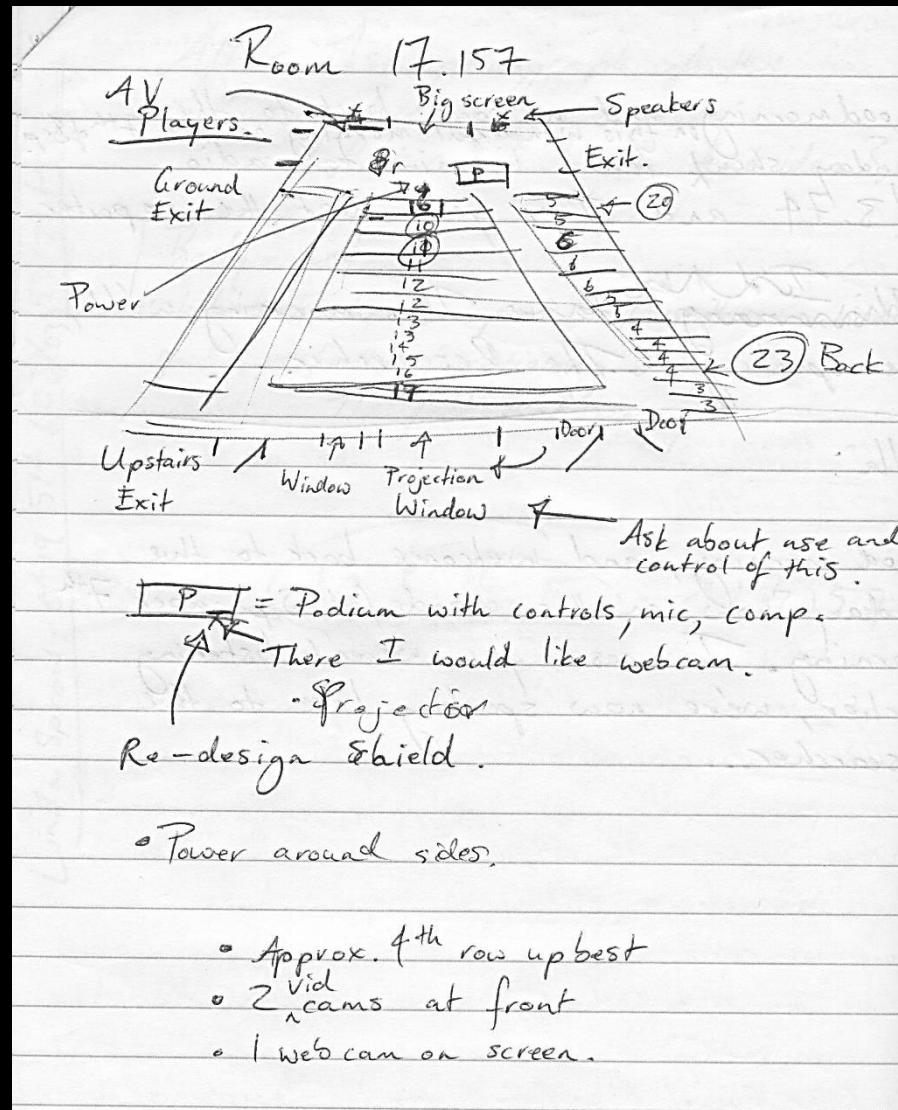 Room 17.157
AV
Players.
Big screen
Speakers
Exit.
Ground
Exit
P
Power
9
10
10
11
12
12
13
13
14
15
16
17
5
5
6
6
6
5
4
4
4
4
2
3
3
20
23 Back
Upstairs
Exit
Window
Projection
Window
Door
Door
Ask about use and
control of this.
P = Podium with controls, mic, comp.
There I would like webcam.
· Projector
Re-design Shield.
• Power around sides.
• Approx. 4th row up best
• 2 vid cams at front
• 1 webcam on screen.